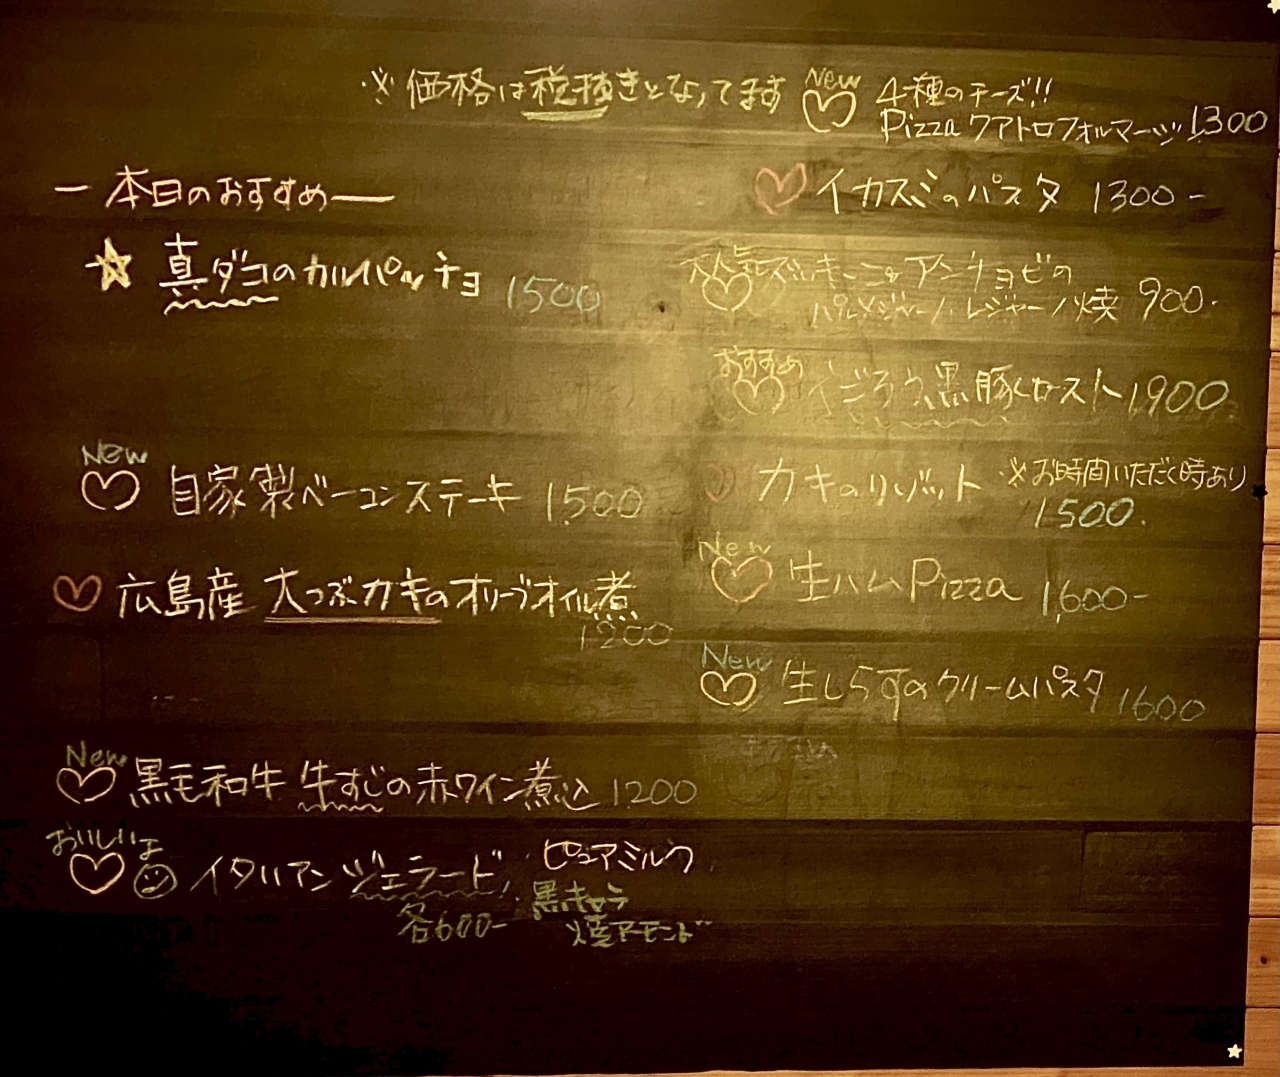 ※価格は税抜きとなってます
ー本日のおすすめー
☆ 真ダコのカルパッチョ 1500
New
♡ 自家製ベーコンステーキ 1500
♡ 広島産 大つぶカキのオリーブオイル煮
1200
New
♡ 黒毛和牛 牛すじの赤ワイン煮込 1200
おいしいよ
♡ イタリアンジェラード! ピュアミルク
各600- 黒キャラ
焼アーモンド
New 4種のチーズ!!
♡ Pizza クアトロフォルマージ 1300
♡ イカスミのパスタ 1300-
人気 ズッキーニとアンチョビの
♡ パルメジャーノ・レジャーノ焼 900.
おすすめ
♡ 黒豚ロースト 1900
♡ カキのリゾット ※お時間いただく時あり
1500.
New
♡ 生ハム Pizza 1600-
New
♡ 生しらすのクリームパスタ 1600